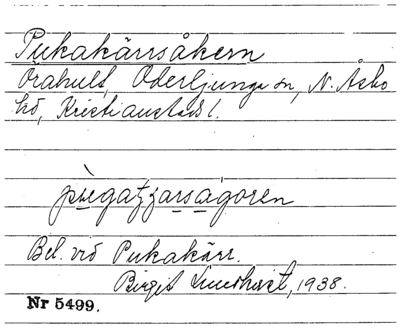 Pukakärrsåkern
Örahult, Oderljunga sn, N. Åsbo
hd, Kristianstads l.
Bel. vid Pukakärr.
Birgit Lindkvist, 1938.
Nr 5499.